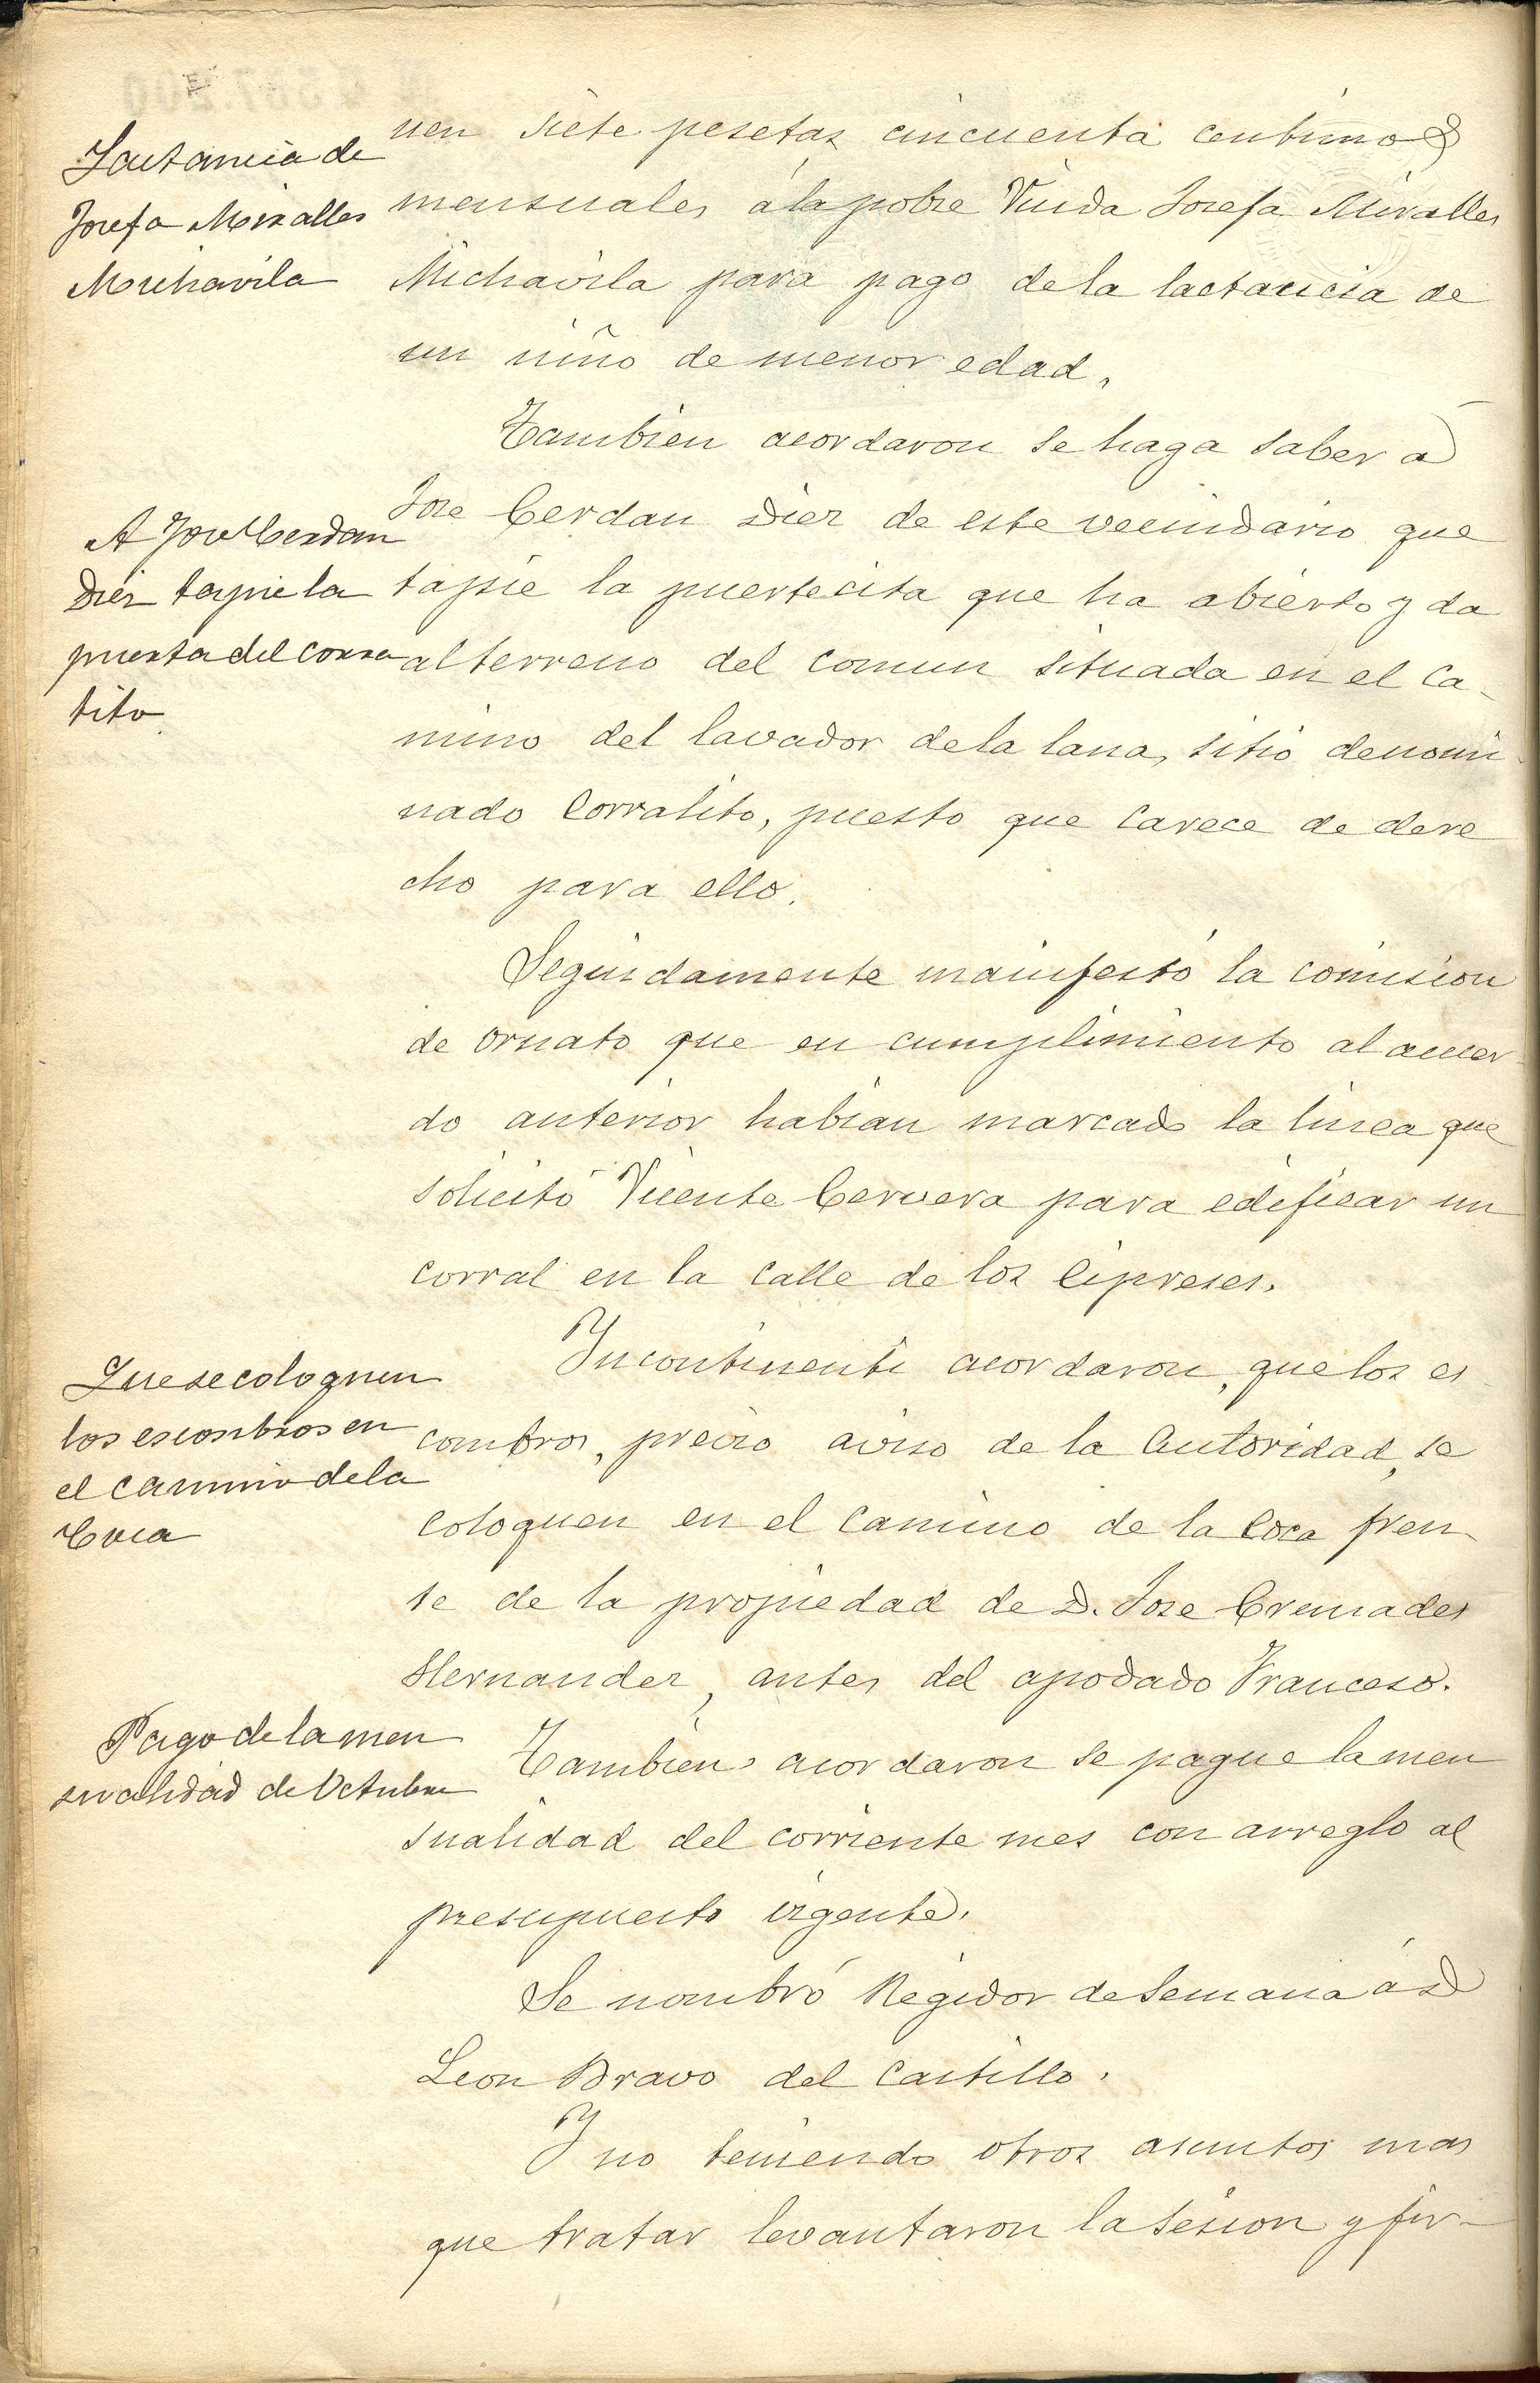 Lactancia de
Josefa Miralles
Michavila
nen siete pesetas cincuenta centimos
mensuales á la pobre Viuda Josefa Miralles
Michavila para pago de la lactancia de
un niño de menor edad,
Tambien acordaron se haga saber a
A Jose Cerdan
Dies tapie la
puerta del corra
lito
Jose Cerdan Diez de este vecindario que
tapie la puertecita que ha abierto y da
al terreno del comun situada en el ca-
mino del lavador de la lana, sitio denomi
nado Corralito, puesto que carece de dere
cho para ello.
Seguidamente manifestó la comision
de ornato que en cumplimiento al acuer
do anterior habian marcado la linea que
solicitó Vicente Cervera para edificar un
corral en la calle de los Cipreses.
Que se coloquen
los escombros en
el camino de la
Coca
Incontinenti acordaron, que los es
combros, previo aviso de la Autoridad, se
coloquen en el camino de la Coca fren-
te de la propiedad de D. Jose Cremades
Hernandez, antes del apodado Franceso.
Pago de la men
sualidad de Octubre
Tambien acordaron se pague la men
sualidad del corriente mes con arreglo al
presupuesto vigente.
Se nombró Regidor de Semana á D
Leon Bravo del Castillo.
Y no teniendo otros asuntos mas
que tratar levantaron la sesion y fir-